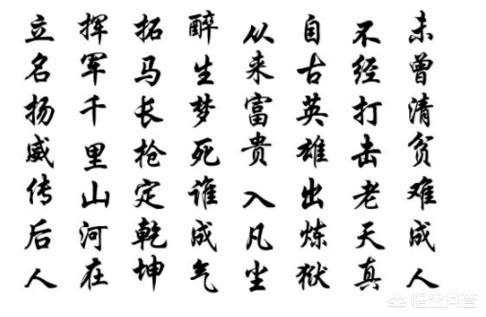 未曾清贫难成人
不经打击老天真
自古英雄出炼狱
从来富贵入凡尘
醉生梦死谁成气
拓马长枪定乾坤
挥军千里山河在
立名扬威传后人
悟空问答